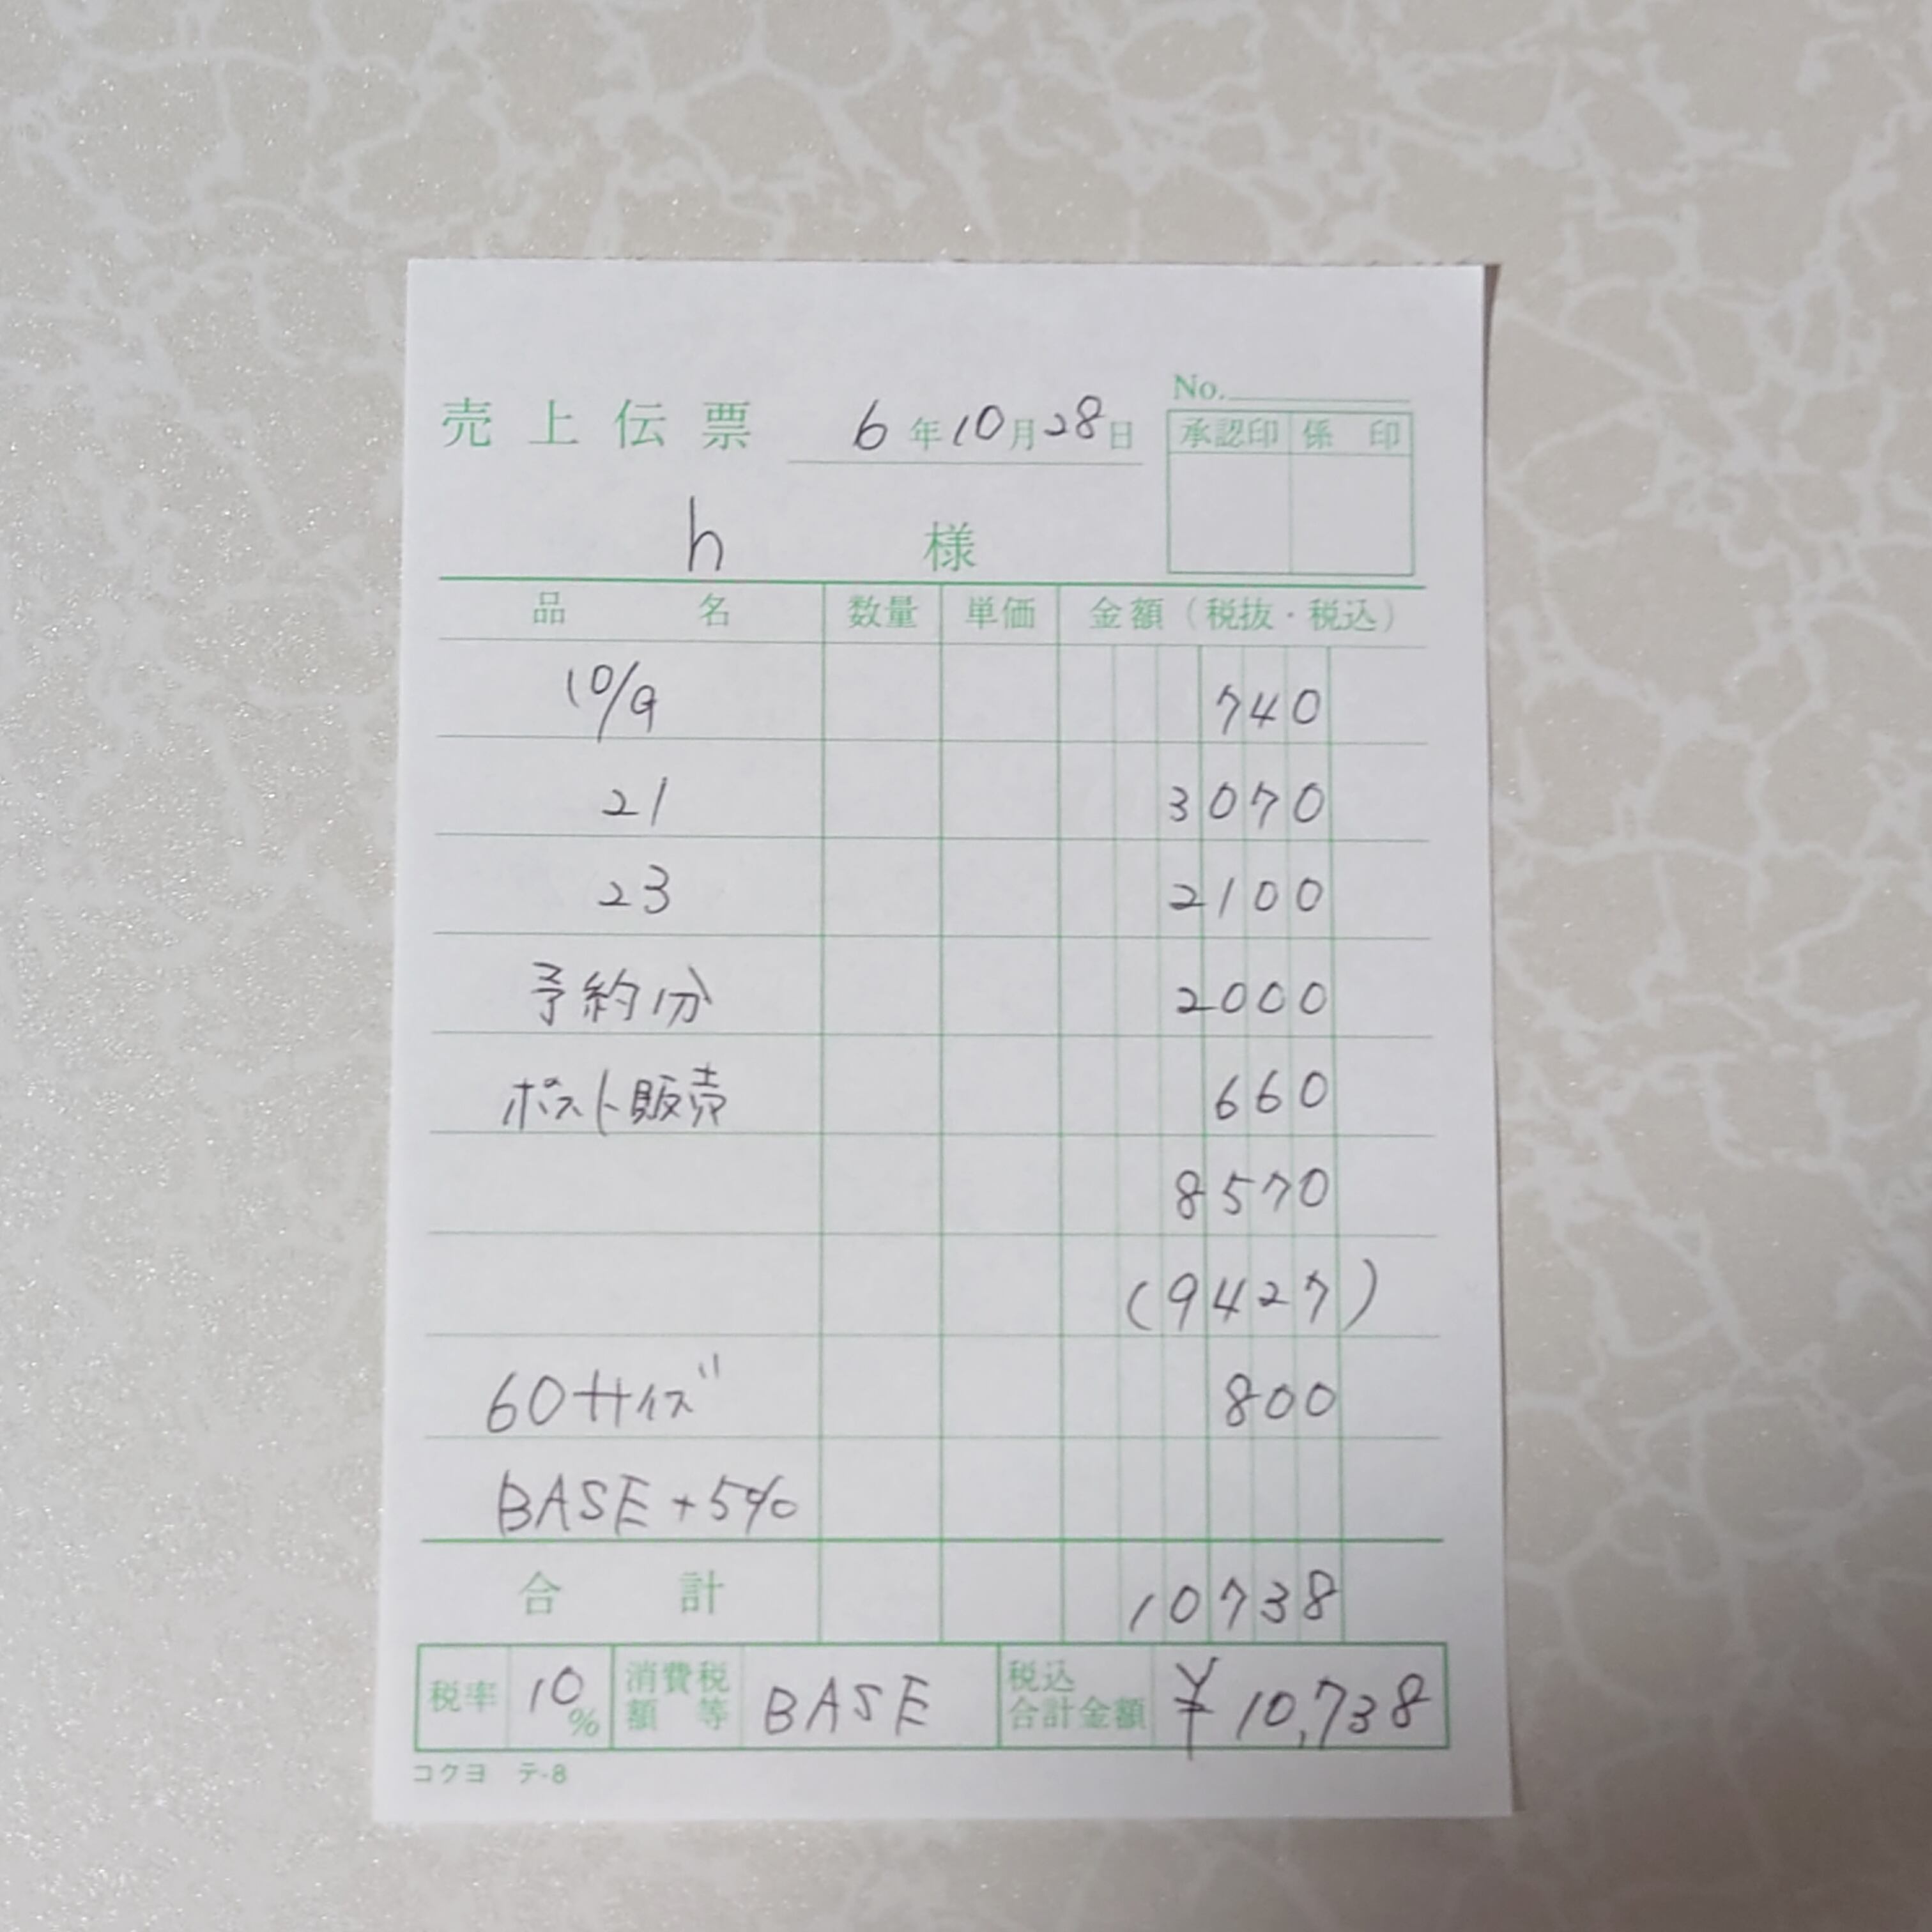 No.
売上伝票 6年10月28日
承認印 係印
h 様
品名 数量 単価 金額（税抜・税込）
10/9 740
21 3070
23 2100
予約分 2000
ポスト販売 660
8570
(9427)
60サイズ 800
BASE+5%
合計 10738
税率 10% 消費税額等 BASE 税込合計金額 ¥10,738
コクヨ テ-8